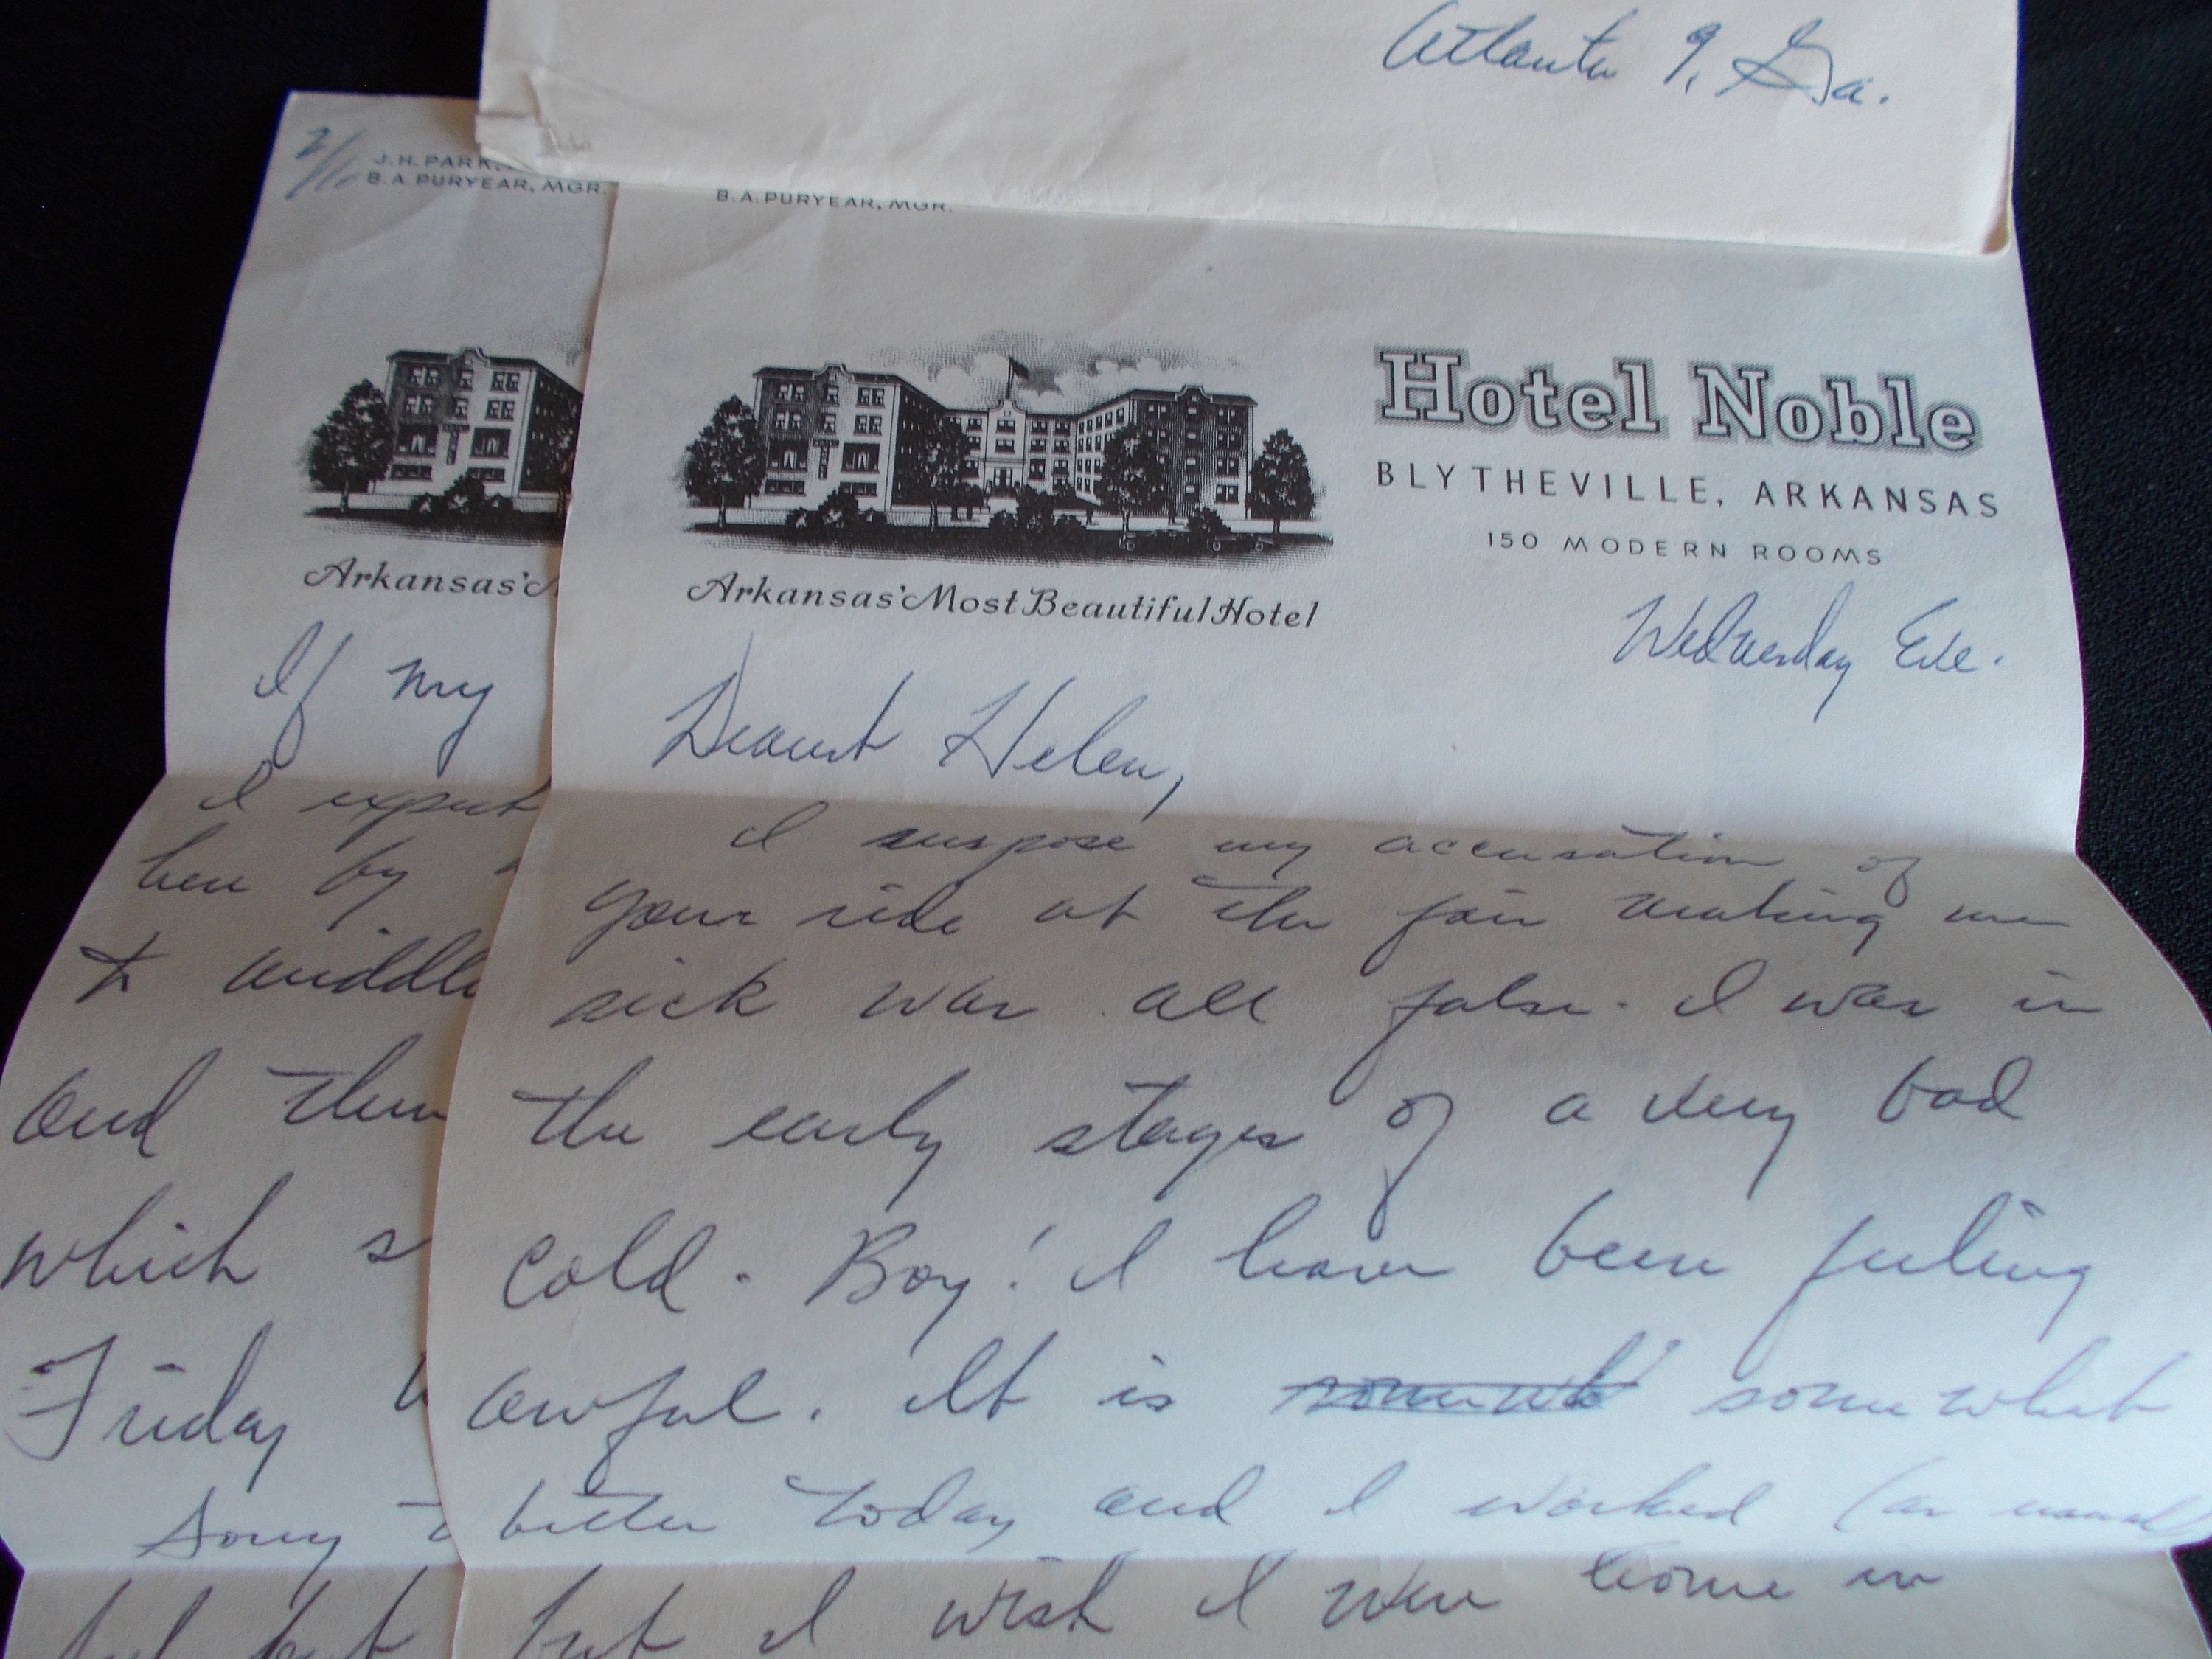 Atlanta 9, Ga.
2/
J.H. PARK,
B.A. PURYEAR, MGR.
Arkansas'
If my
I expect
here by
to middle
and then
which s
Friday
Sorry
but
B.A. PURYEAR, MGR.
Hotel Noble
BLYTHEVILLE, ARKANSAS
150 MODERN ROOMS
Arkansas' Most Beautiful Hotel
Wednesday Eve.
Dearest Helen,
I suspose my accusation of
your ride at the fair making me
sick was all false. I was in
the early stages of a very bad
cold. Boy! I have been feeling
awful. It is somewhat
better today and I worked (as usual)
but I wish I were home in